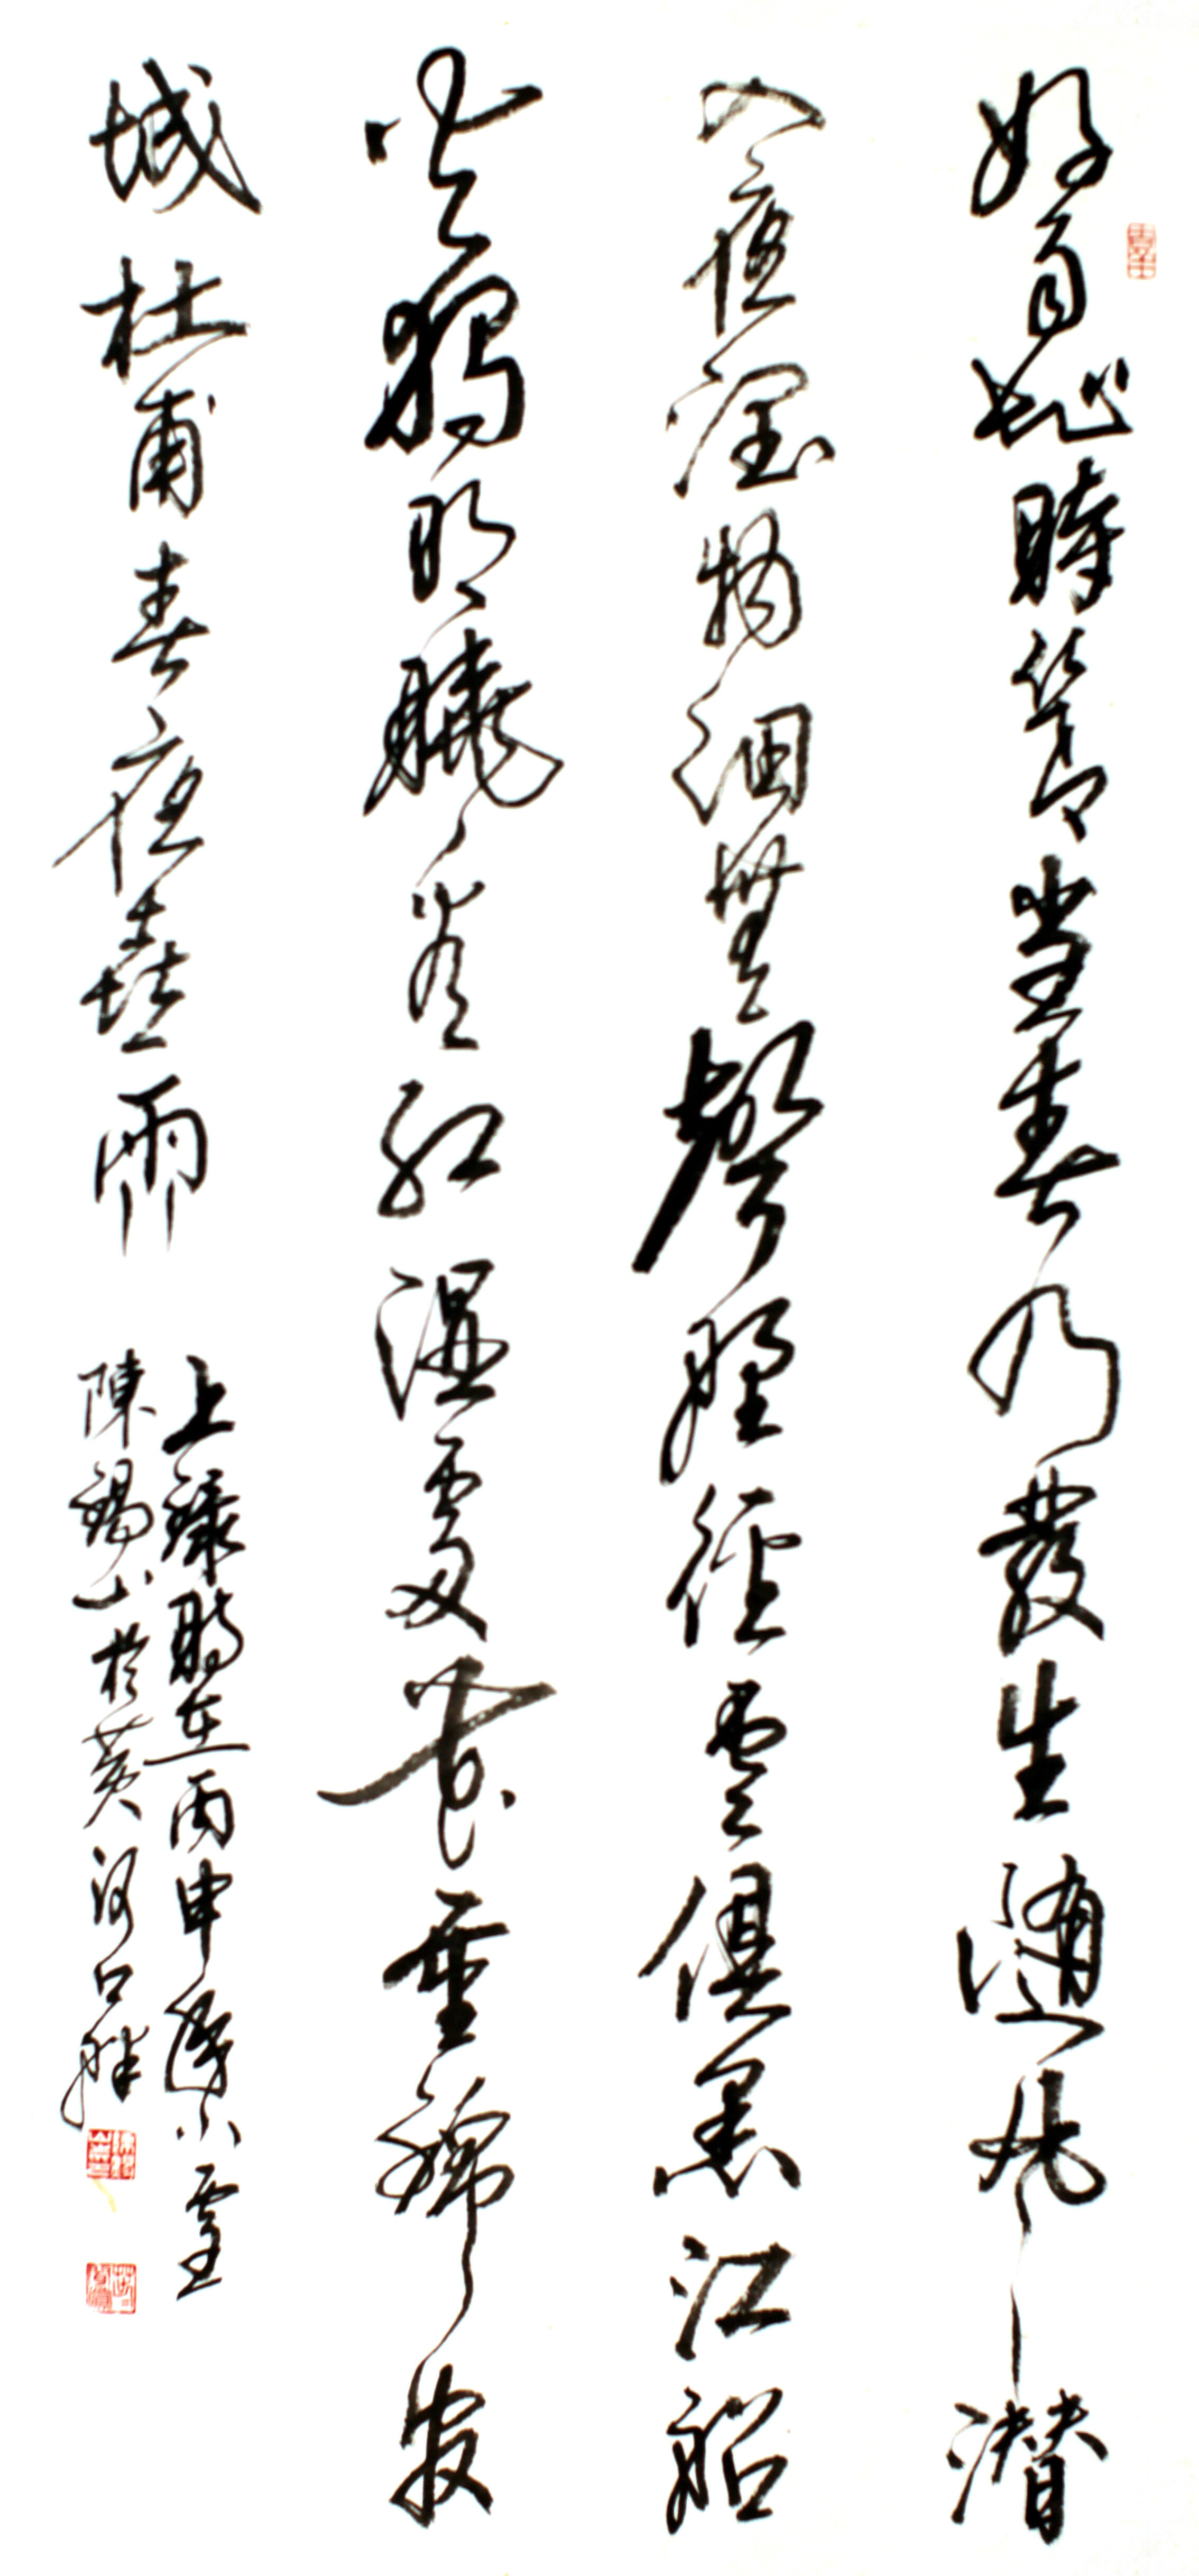 好雨知時節當春乃發生隨風潛
入夜潤物細無聲野徑雲俱黑江船
火獨明曉看紅濕處花重錦官
城杜甫春夜喜雨
上錄時在丙申小雪
陳錫山於黃河口畔